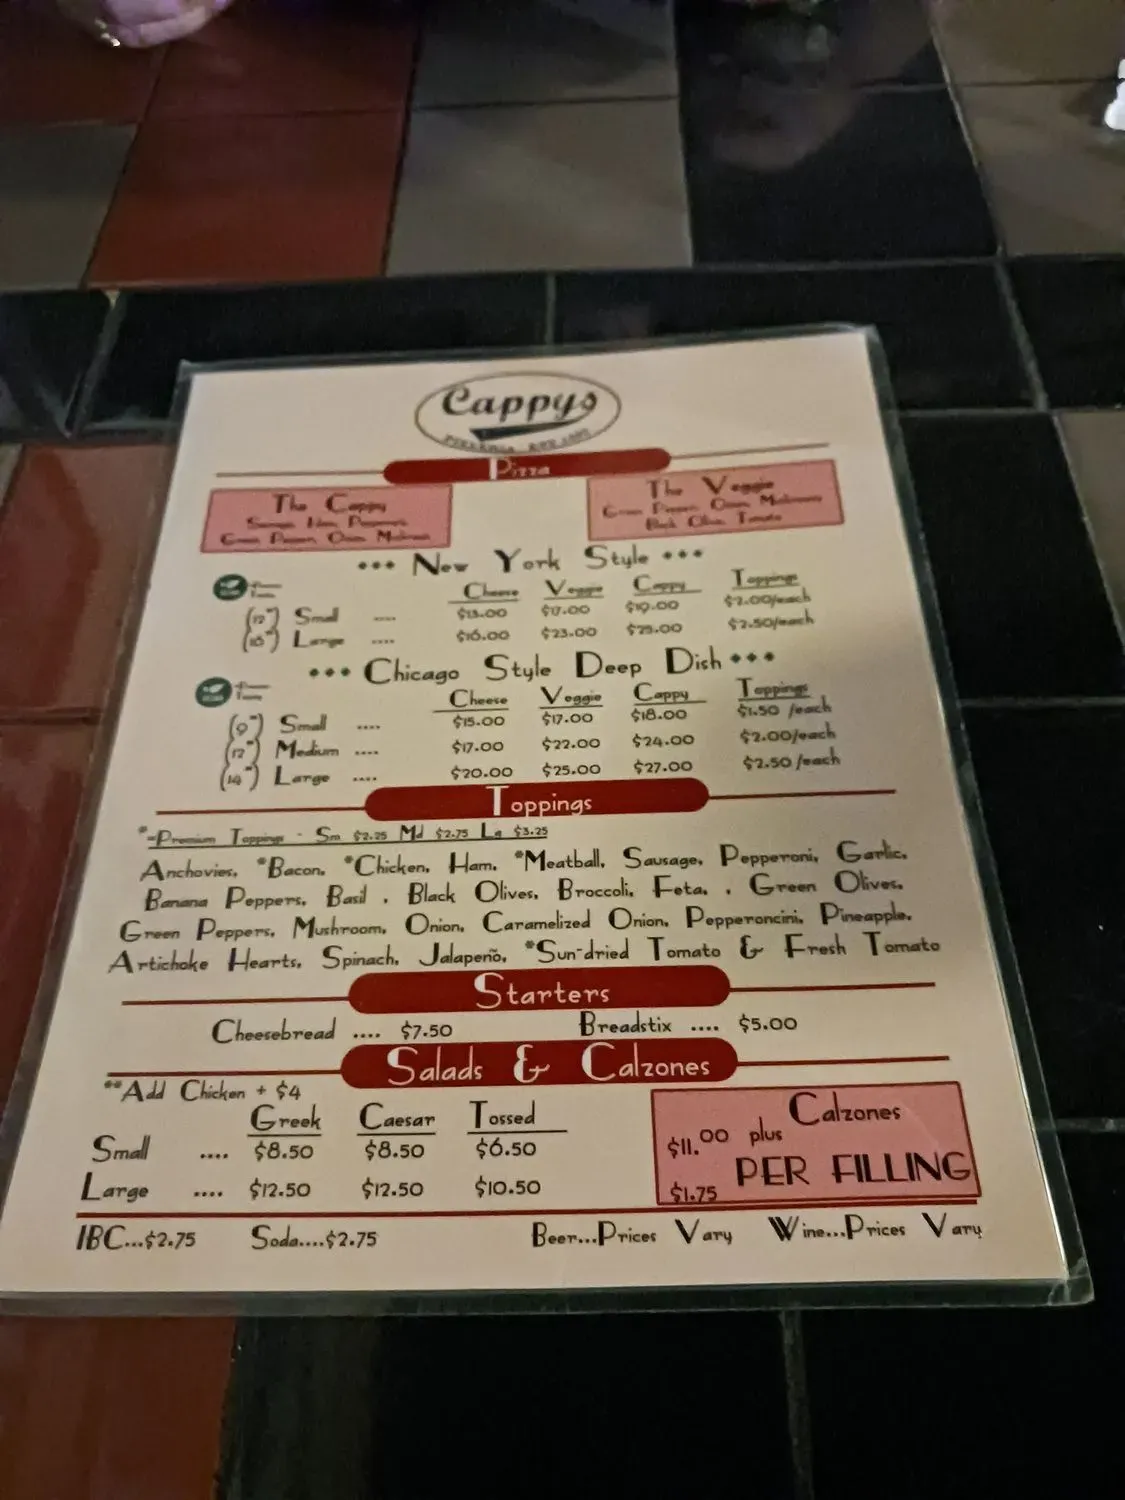 Cappys
Pizza
The Cappy
Green Peppers, Onion, Mushroom
The Veggie
Green Peppers, Onion, Mushrooms
Black Olive, Tomato
••• New York Style •••
Cheese Veggie Cappy Toppings
(12") Small .... $13.00 $17.00 $19.00 $2.00/each
(16") Large .... $16.00 $23.00 $25.00 $2.50/each
••• Chicago Style Deep Dish •••
Cheese Veggie Cappy Toppings
(9") Small .... $15.00 $17.00 $18.00 $1.50 /each
(12") Medium .... $17.00 $22.00 $24.00 $2.00/each
(14") Large .... $20.00 $25.00 $27.00 $2.50 /each
Toppings
*=Premium Toppings - Sm $2.25 Md $2.75 La $3.25
Anchovies, *Bacon, *Chicken, Ham, *Meatball, Sausage, Pepperoni, Garlic,
Banana Peppers, Basil , Black Olives, Broccoli, Feta, , Green Olives,
Green Peppers, Mushroom, Onion, Caramelized Onion, Pepperoncini, Pineapple,
Artichoke Hearts, Spinach, Jalapeño, *Sun-dried Tomato & Fresh Tomato
Starters
Cheesebread .... $7.50 Breadstix .... $5.00
Salads & Calzones
**Add Chicken + $4
Greek Caesar Tossed
Small .... $8.50 $8.50 $6.50
Large .... $12.50 $12.50 $10.50
Calzones
$11.00 plus
$1.75 PER FILLING
IBC...$2.75 Soda....$2.75 Beer...Prices Vary Wine...Prices Vary